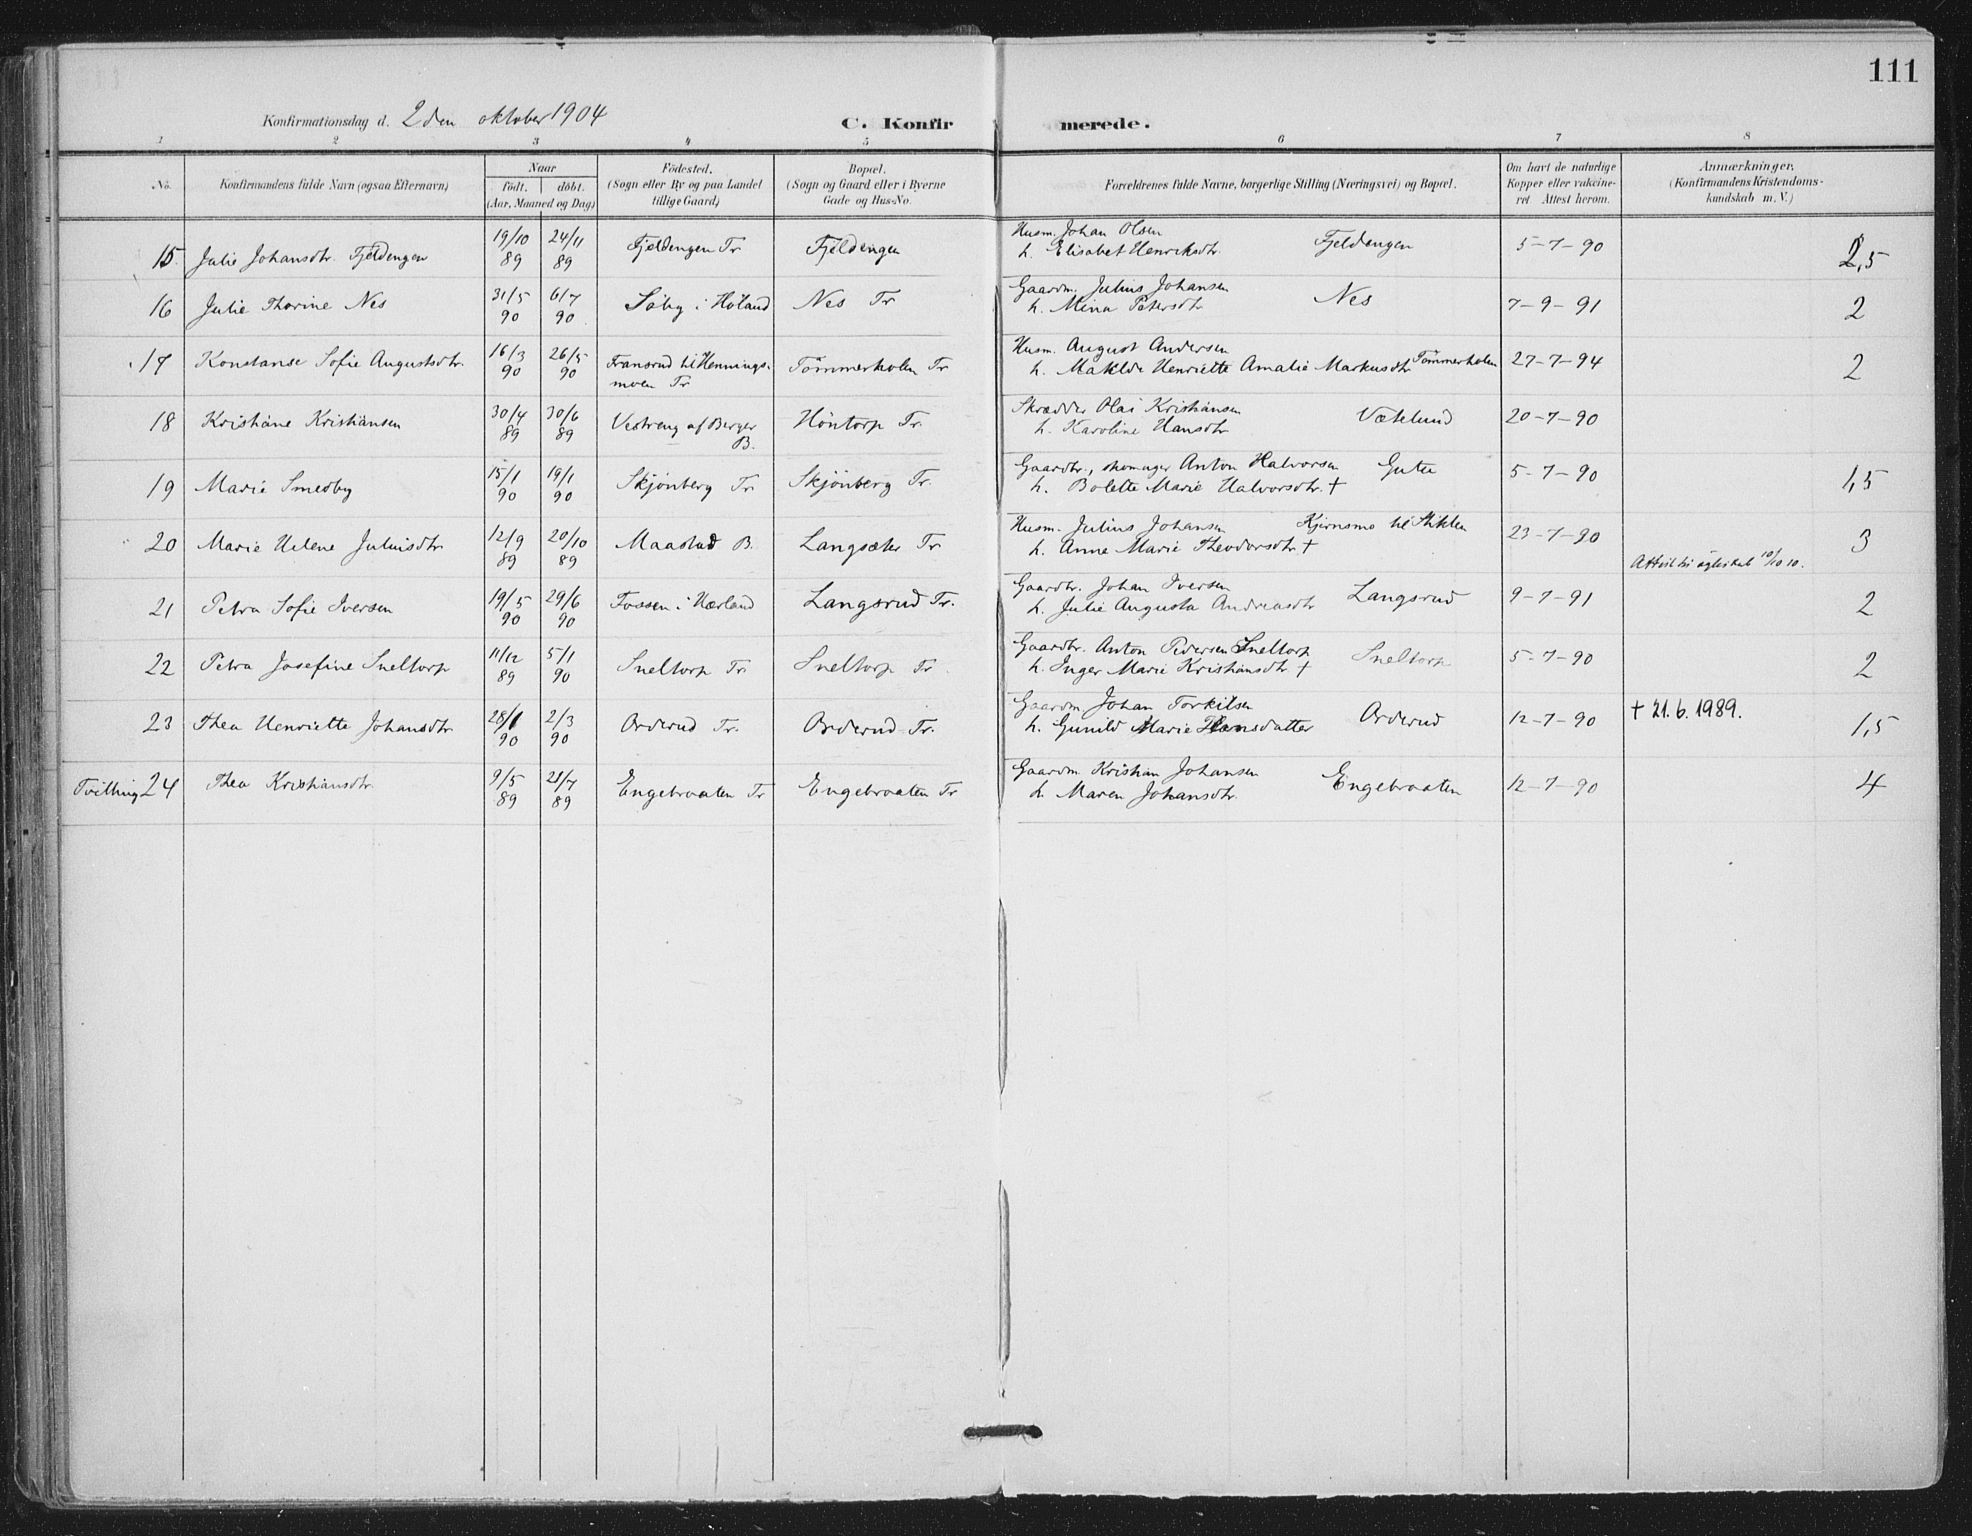 111
Konfirmationsdag d. 2den oktober 1904
C. Konfirmerede.
1 2 3 4 5 6 7 8
No. Konfirmandens fulde Navn (ogsaa Efternavn) Naar født. døbt. (Aar, Maaned og Dag) Födested. (Sogn eller By og paa Landet tillige Gaard) Bopæl. (Sogn og Gaard eller i Byerne Gade og Hus-No. Forældrenes fulde Navne, borgerlige Stilling (Næringsvei) og Bopæl. Om havt de naturlige Kopper eller vakcineret Attest herom. Anmærkninger. (Konfirmandens Kristendomskundskab m. V.)
15 Julie Johansdtr. Fjeldengen 19/10 89 24/11 89 Fjeldengen Tr Fjeldengen Husm. Johan Olsen Fjeldengen 5-7-90 2,5
h. Elisabet Henriksdtr.
16 Julie Thorine Nes 31/5 90 6/7 90 Søby i Høland Nes Tr Gaardm. Julius Johansen Nes 7-9-91 2
h. Mina Petersdtr
17 Konstanse Sofie Augustsdtr. 16/3 90 26/5 90 Fransrud til Hennings- Tømmerholen Tr Husm. August Andersen 27-7-94 2
moen Tr h. Matilde Henriette Amalie Markusdtr Tømmerholen
18 Kristiane Kristiansen 30/4 89 30/6 89 Vestreng af Berger B. Höntorp Tr. Skrædder Olai Kristiansen 20-7-90
h. Karoline Hansdtr
19 Marie Smedby 15/1 90 19/1 90 Skjönberg Tr. Skjönberg Tr. Gaardbr., skomager Anton Halvorsen 5-7-90 1,5
h. Bolette Marie Halvorsdtr. †
20 Marie Helene Juliusdtr 12/9 89 20/10 89 Maastad B. Langsæter Tr Husm. Julius Johansen Kjernsmo til Stikla 23-7-90 3
h. Anne Marie Theodorsdtr † Attest til ægteskab 10/10 10.
21 Petra Sofie Iversen 19/5 90 29/6 90 Fossen i Hærland Langsrud Tr. Gaardbr. Johan Iversen Langsrud 9-7-91 2
h. Julie Augusta Andreasdtr
22 Petra Josefine Sneltorp 11/12 89 5/1 90 Sneltorp Tr. Sneltorp Tr. Gaardbr. Anton Pedersen Sneltorp Sneltorp 5-7-90 2
h. Inger Marie Kristiansdtr. †
23 Thea Henriette Johansdtr 28/1 90 2/3 90 Orderud Tr. Orderud Tr. Gaardm Johan Torkilsen Orderud 12-7-90 † 21.6.1989. 1,5
h. Gunild Marie Hansdatter
Tvilling 24 Thea Kristiansdtr. 9/5 89 28/7 89 Engebraaten Tr Engebraaten Tr Gaardm Kristian Johansen Engebraaten 12-7-90 4
h. Maren Johansdtr.